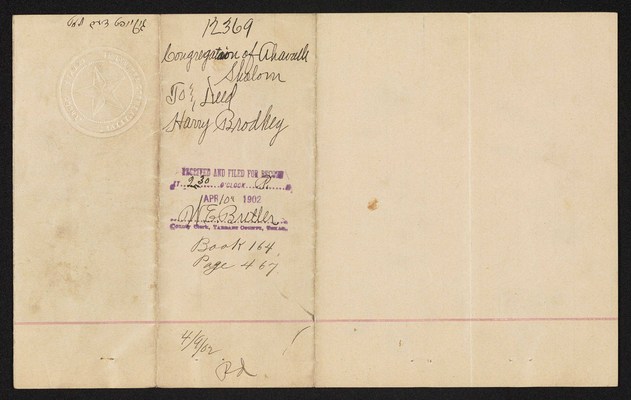 12369
Congregation of Ahavath
Shalom
To } Deed
Harry Brodkey
RECEIVED AND FILED FOR RECORD
AT 2 30 O'CLOCK P. M
APR 10 1902
W E Butler
County Clerk, Tarrant County, Texas.
Book 164
Page 467
4/9/02
Pd